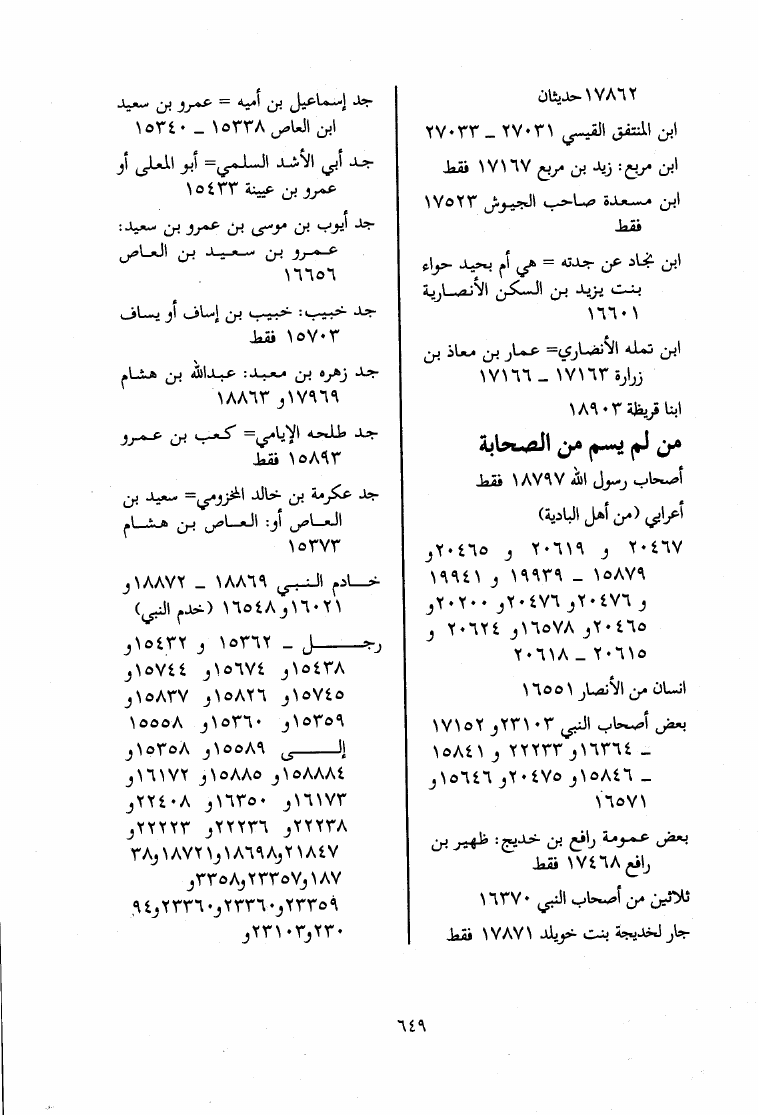 ١٧٨٦٢ حديثان
ابن المنتفق القيسي ٢٧٠٣١ – ٢٧٠٣٣
ابن مربع: زيد بن مربع ١٧١٦٧ فقط
ابن مسعدة صاحب الجيوش ١٧٥٢٣
فقط
ابن نجاد عن جدته = هي أم بحيد حواء
بنت يزيد بن السكن الأنصارية
١٦٦٠١
ابن تمله الأنضاري= عمار بن معاذ بن
زرارة ١٧١٦٣ – ١٧١٦٦
ابنا قريظة ١٨٩٠٣
من لم يسم من الصحابة
أصحاب رسول الله ١٨٧٩٧ فقط
أعرابي (من أهل البادية)
٢٠٤٦٧ و ٢٠٦١٩ و ٢٠٤٦٥و
١٥٨٧٩ – ١٩٩٣٩ و ١٩٩٤١
و ٢٠٤٧٦و ٢٠٤٧٦و ٢٠٢٠٠و
٢٠٤٦٥و ١٦٥٧٨و ٢٠٦٢٤ و
٢٠٦١٥ – ٢٠٦١٨
انسان من الأنصار ١٦٥٥١
بعض أصحاب النبي ٢٣١٠٣و ١٧١٥٢
– ١٦٣٦٤و ٢٢٢٣٣ و ١٥٨٤١
– ١٥٨٤٦و ٢٠٤٧٥و ١٥٦٤٦و
١٦٥٧١
بعض عمومة رافع بن خديج: ظهير بن
رافع ١٧٤٦٨ فقط
ثلاثين من أصحاب النبي ١٦٣٧٠
جار لخديجة بنت خويلد ١٧٨٧١ فقط
جد إسماعيل بن أميه = عمرو بن سعيد
ابن العاص ١٥٣٣٨ – ١٥٣٤٠
جد أبي الأشد السلمي= أبو المعلى أو
عمرو بن عيينة ١٥٤٣٣
جد أيوب بن موسى بن عمرو بن سعيد:
عمرو بن سعيد بن العاص
١٦٦٥٦
جد خبيب: خبيب بن إساف أو يساف
١٥٧٠٣ فقط
جد زهره بن معبد: عبدالله بن هشام
١٧٩٦٩و ١٨٨٦٣
جد طلحه الإيامي= كعب بن عمرو
١٥٨٩٣ فقط
جد عكرمة بن خالد المخزومي= سعيد بن
العاص أو: العاص بن هشام
١٥٣٧٣
خادم النبي ١٨٨٦٩ – ١٨٨٧٢و
١٦٠٢١و١٦٥٤٨ (خدم النبي)
رجل – ١٥٣٦٢ و ١٥٤٣٢و
١٥٤٣٨و ١٥٦٧٤و ١٥٧٤٤و
١٥٧٤٥و ١٥٨٢٦و ١٥٨٣٧و
١٥٣٥٩و ١٥٣٦٠و ١٥٥٥٨
إلى ١٥٥٨٩و ١٥٣٥٨و
١٥٨٨٨٤و ١٥٨٨٥و ١٦١٧٢و
١٦١٧٣و ١٦٣٥٠و ٢٢٤٠٨و
٢٢٢٣٨و ٢٢٢٣٦و ٢٢٢٢٣و
٢١٨٤٧و١٨٦٩٨و١٨٧٢١و٣٨
١٨٧و٢٣٣٥٧و٢٣٣٥٨و
٢٣٣٥٩و٢٣٣٦٠و٢٣٣٦٠و٩٤
٢٣٠و٢٣١٠٣و
٦٤٩